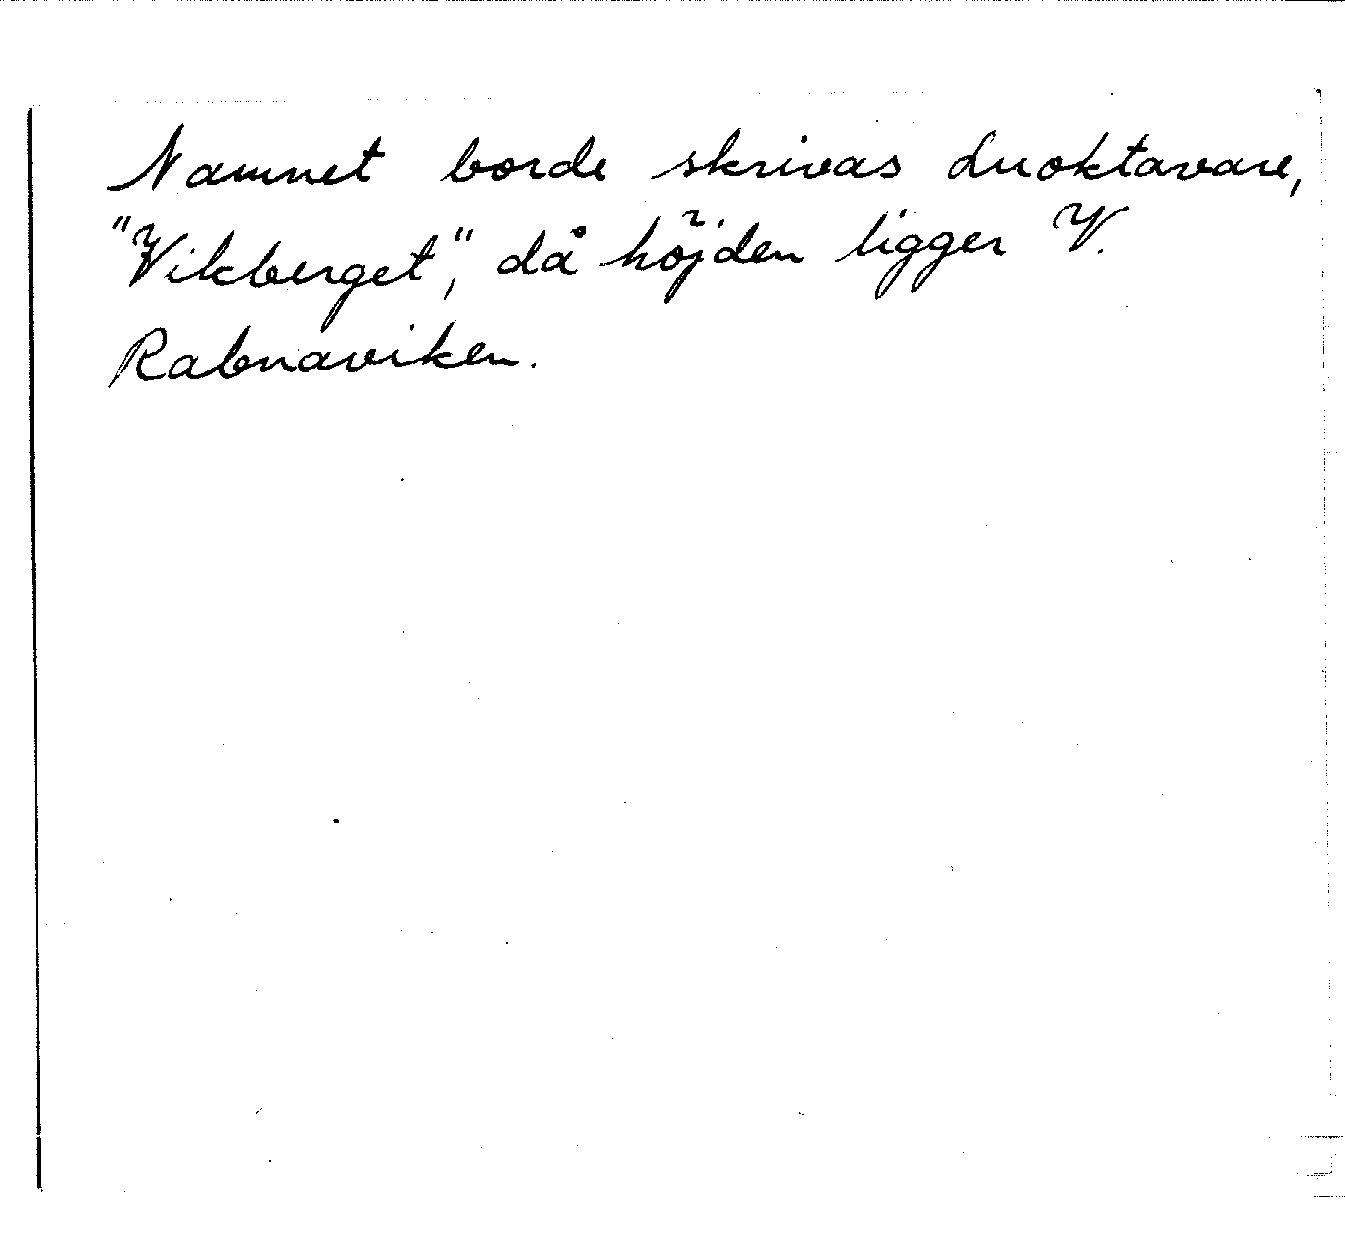 Namnet borde skrivas Luoktavare,
"Vikberget", då höjden ligger V.
Rabnaviken.